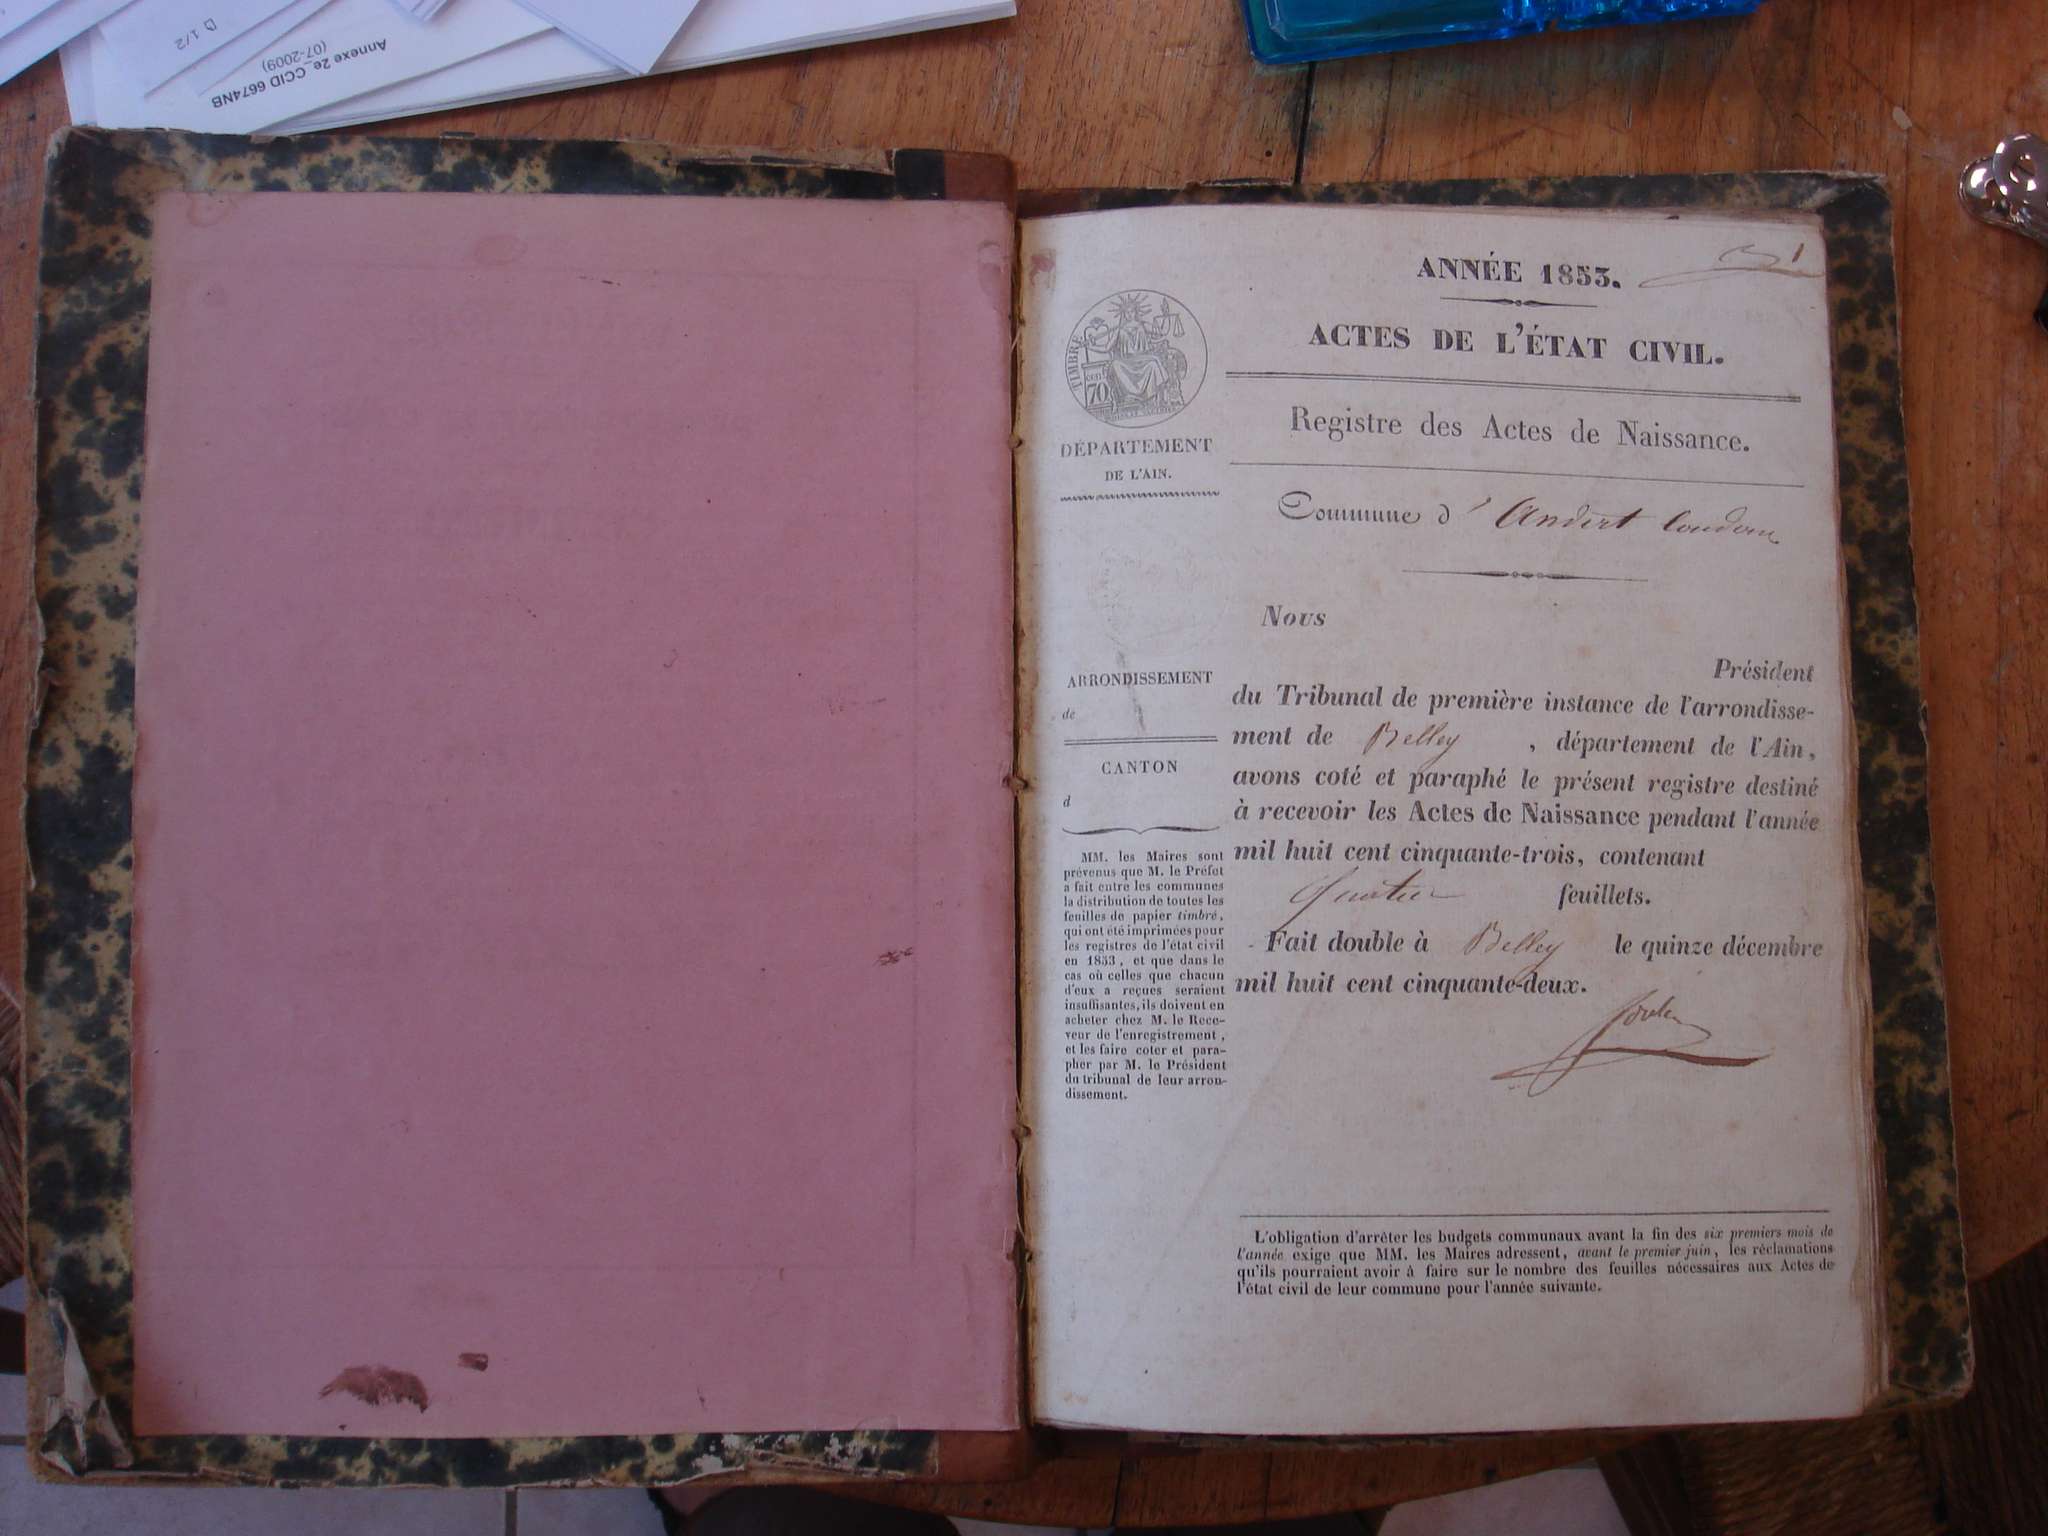 D 1/2
Annexe 2e_CCID 6674NB
(07-2009)
1
ANNÉE 1853.
ACTES DE L'ÉTAT CIVIL.
TIMBRE
CENT
70
DÉPARTEMENT
DE L'AIN.
Registre des Actes de Naissance.
Commune d' Andert Condon
Nous
Président
du Tribunal de première instance de l'arrondisse-
ment de Belley , département de l'Ain,
avons coté et paraphé le présent registre destiné
à recevoir les Actes de Naissance pendant l'année
mil huit cent cinquante-trois, contenant
feuillets.
Fait double à Belley le quinze décembre
mil huit cent cinquante-deux.
ARRONDISSEMENT
de
CANTON
d
MM. les Maires sont
prévenus que M. le Préfet
a fait entre les communes
la distribution de toutes les
feuilles de papier timbré,
qui ont été imprimées pour
les registres de l'état civil
en 1853, et que dans le
cas où celles que chacun
d'eux a reçues seraient
insuffisantes, ils doivent en
acheter chez M. le Rece-
veur de l'enregistrement,
et les faire coter et para-
pher par M. le Président
du tribunal de leur arron-
dissement.
L'obligation d'arrêter les budgets communaux avant la fin des six premiers mois de
l'année exige que MM. les Maires adressent, avant le premier juin, les réclamations
qu'ils pourraient avoir à faire sur le nombre des feuilles nécessaires aux Actes de
l'état civil de leur commune pour l'année suivante.